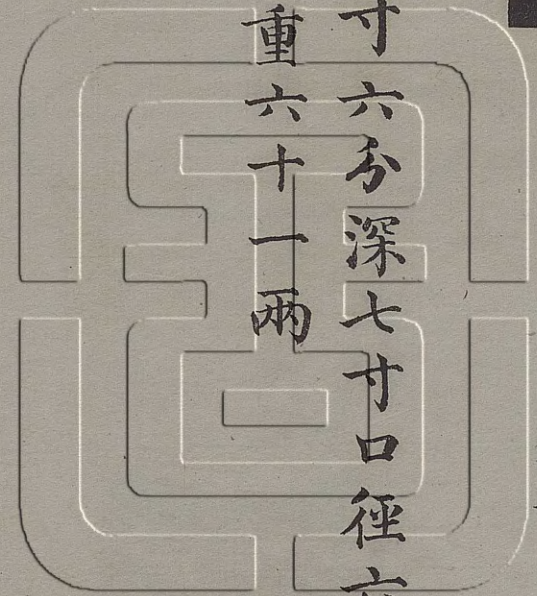 寸六分深七寸口徑六
重六十一兩